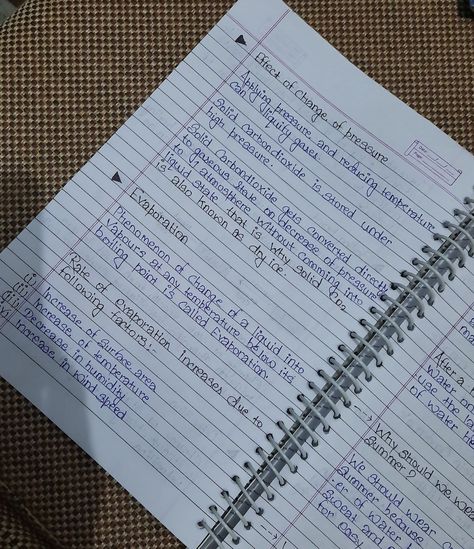 Effect of change of pressure
Applying pressure and reducing temperature
can liquify gases
Solid Carbondioxide is stored under
high pressure.
Solid Carbondioxide gets converted directly
to gaseous state on decrease of pressure
to 1 atmosphere without comming into
liquid state that is why solid CO2
is also known as dry ice.
Evaporation
Phenomenon of change of a liquid into
Vapours at any temperature below its
boiling point is called Evaporation.
Rate of evaporation increases due to
following factors:-
i) Increase of surface area
ii) Increase of temperature
iii) Decrease in humidity
iv) Increase in Wind speed
After a
Water
use the
of water
Why should we wea
summer?
We should wear
summer because
of water
sweat and
for easy